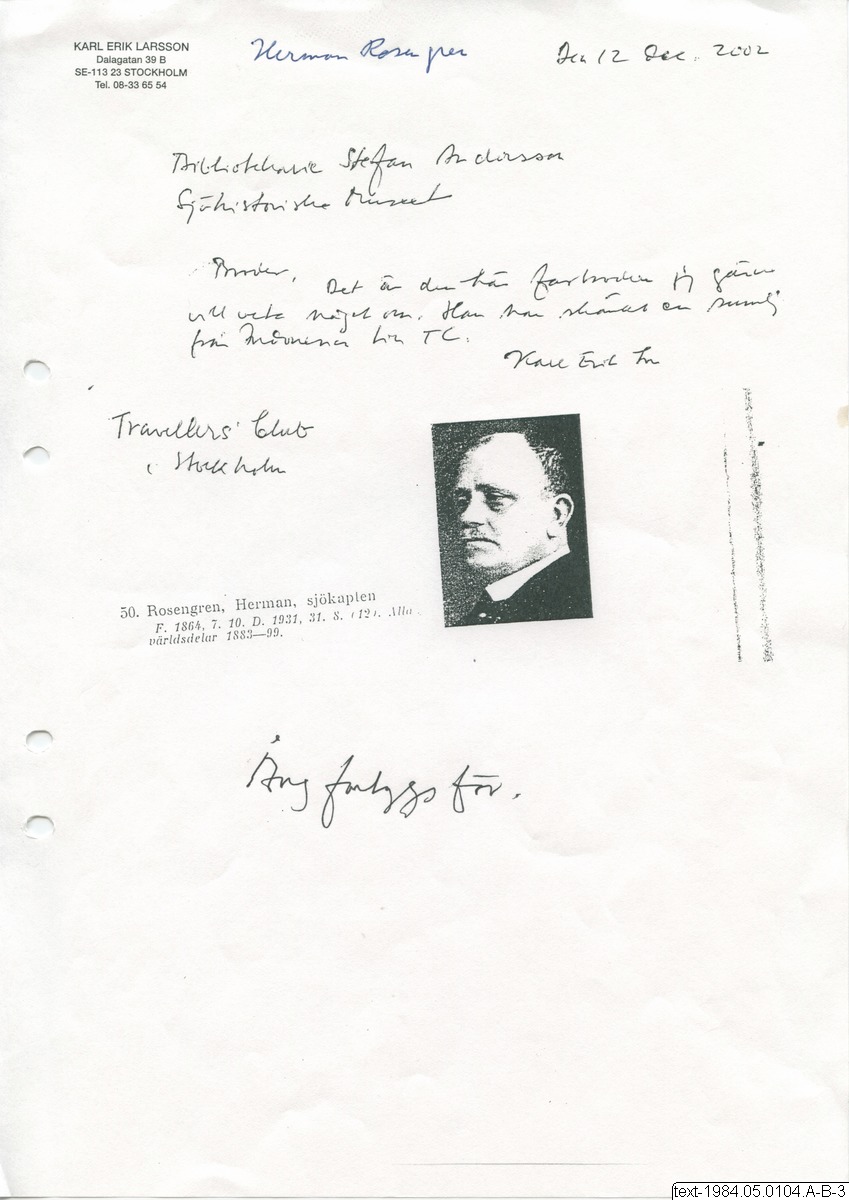 KARL ERIK LARSSON
Dalagatan 39 B
SE-113 23 STOCKHOLM
Tel. 08-33 65 54
Herman Rosengren
Den 12 Dec. 2002
Bibliotekarie Stefan Andersson
Sjöhistoriska Museet
Broder, Det är den här farbrodern jag gärna
vill veta något om. Han har skänkt en
från Indonesien till TC.
Karl Erik Ln
Travellers' Club
i Stockholm
50. Rosengren, Herman, sjökapten
F. 1864, 7. 10. D. 1931, 31. 8. (12). Alla
världsdelar 1883—99.
Ång för.
text-1984.05.0104.A-B-3